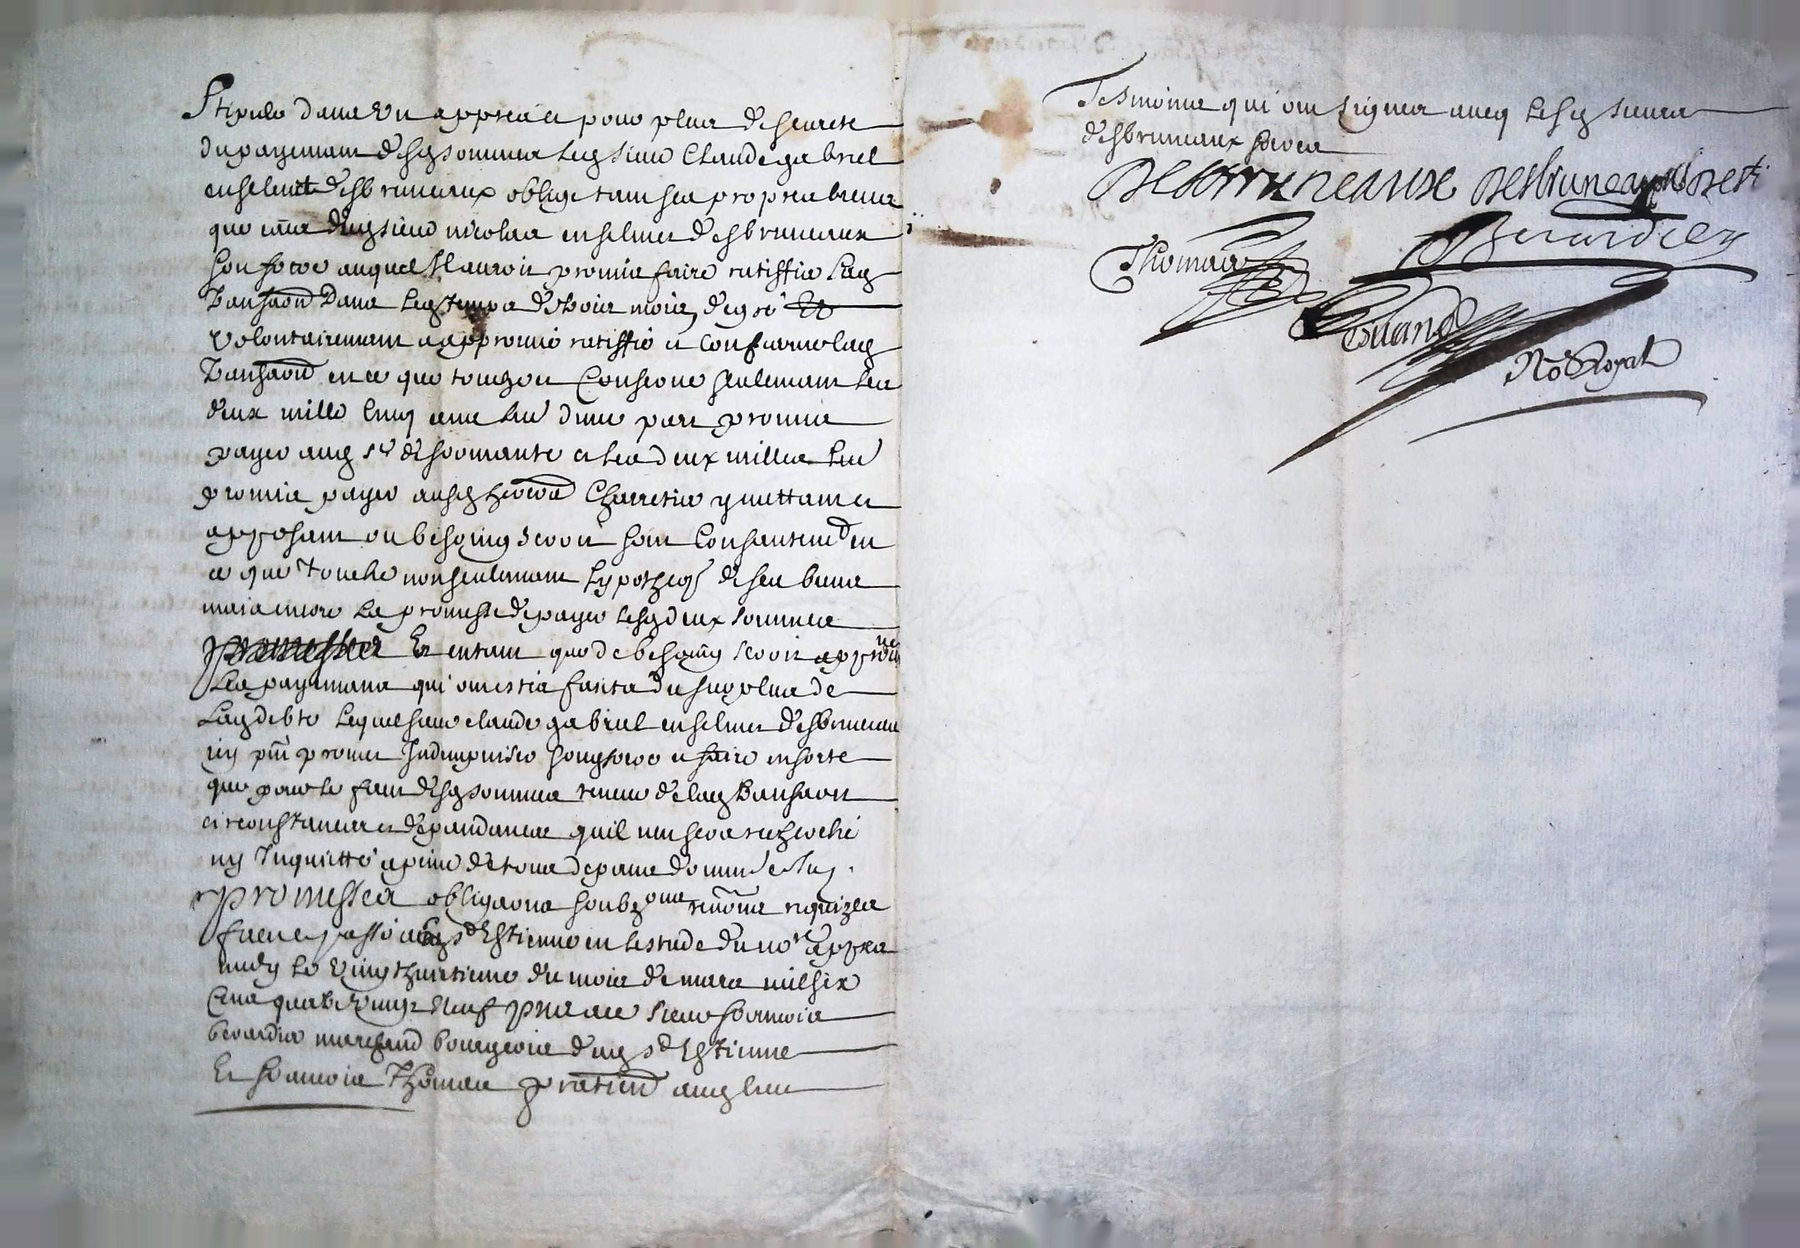 Stipulé dans un appres et pour plus de seurete
du payemant desd sommes led sieur Claude gabriel
enselmet desbruneaux oblige tant ses propres biens
que ceux dud sieur nicolas enselmet desbruneaux
son frere auquel Il auroit promis faire ratiffier lad
Transaon dans led temps de trois mois, de gré Et
volontairemant a approuvé ratiffié et confirmé lad
Transaon en ce que touche et conserne seulemant les
deux mille cinq cens livres dune part promis
payer aud sr de et les deux milles livres
promis payer ausd Charretier quittant et
aprosant ou besoing seroit son consantemt en
ce que touche non seulemant lypotheq de ses biens
mais encore la promesse de payer lesd deux sommes
promesses Et entant que de besoing seroit aprouve
les payemans qui ont estés faits du surplus de
lad debte lequel sieur claude gabriel enselmet desbruneau
icy pnt promet Indempniser sond frere et faire en sorte
que pour le fait desd sommes tenue de lad transaon
circonstances et depandances quil nen sera recherché
ny Inquietté a peine de tous depans domm Et
promesses obligaons soubz ons requizes
fait et passé aud st Estienne en lestude du nore apres
midy le vingthuitieme du mois de mars mil six
cens quatre vingt neuf presans sieur francois
berardier marchand bourgeois dud st Estienne
Et francois Thomas praticien aud lieu
Tesmoins qui ont signer avecq lesd sieurs
desbruneaux freres
Desbruneaux Desbruneaux
Thomas Berardier
No Royal